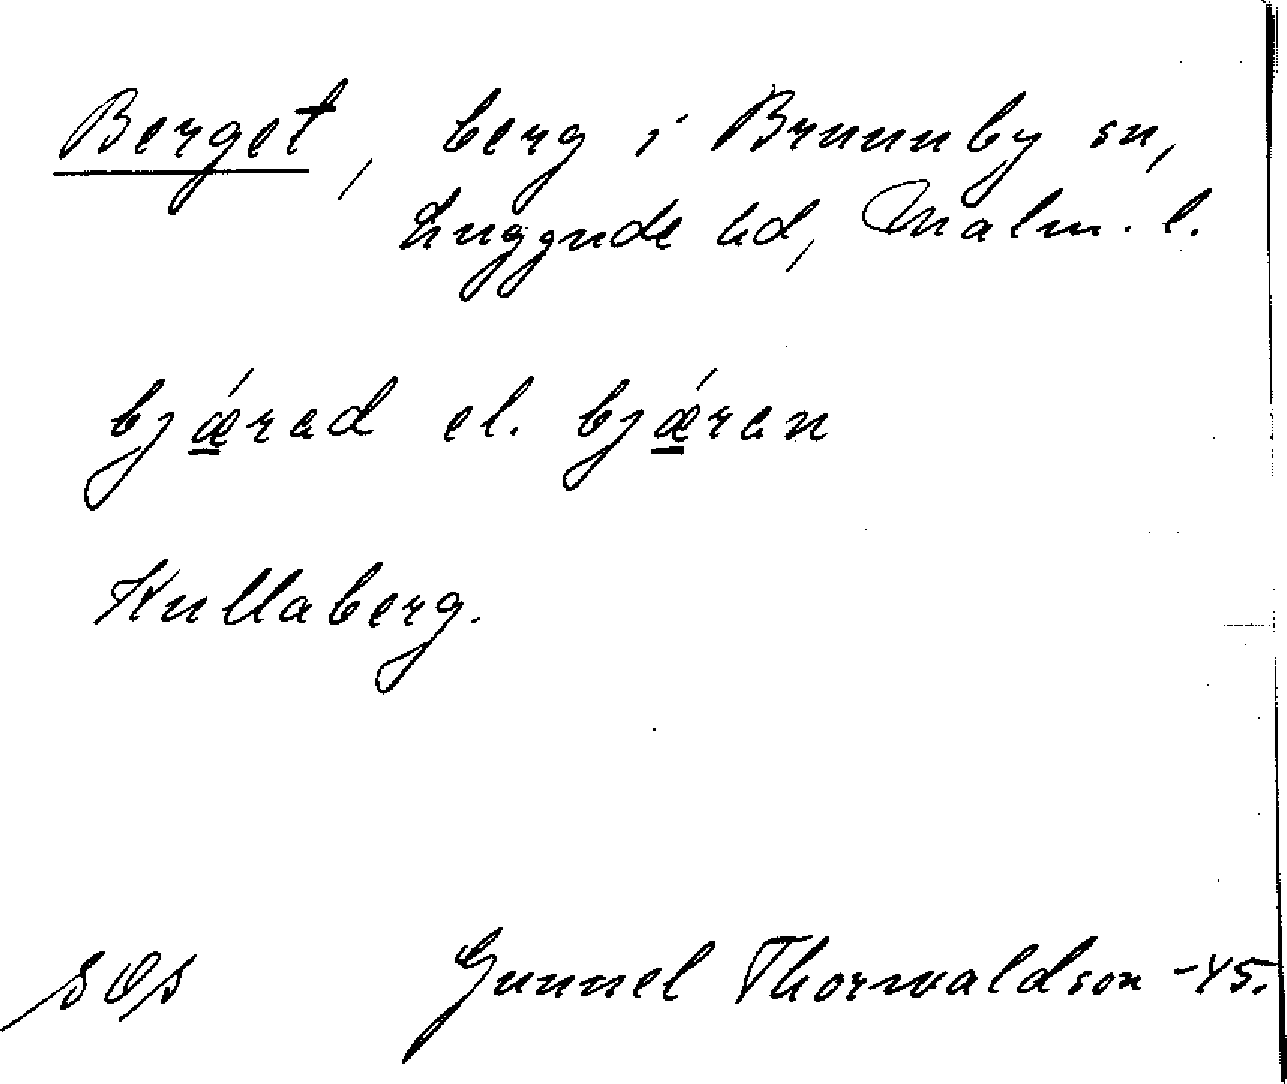 Berget, berg i Brunnby sn,
Luggude hd, Malm. l.
bjǽrad el. bjǽran
Kullaberg.
SOS Gunnel Thorwaldson -45.